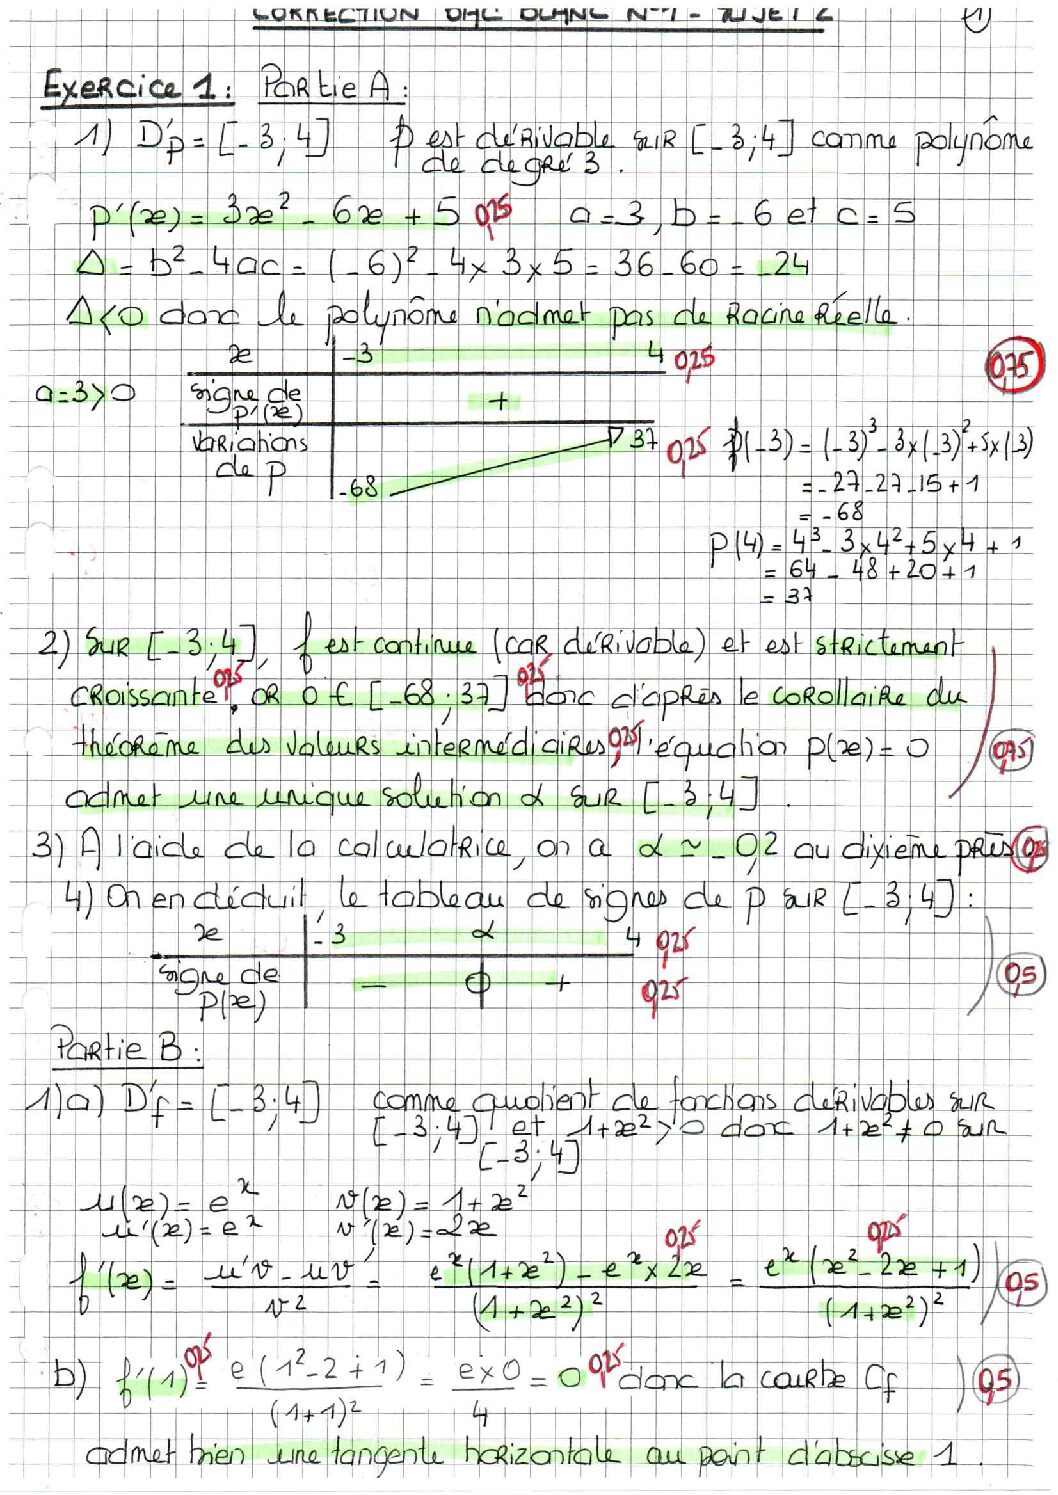 CORRECTION BAC BLANC N°1 - SUJET 2 1
Exercice 1 : Partie A :
1) D'p = [-3 ; 4] p est dérivable sur [-3 ; 4] comme polynôme
de degré 3 .
p'(x) = 3x² - 6x + 5 0,25 a = 3 , b = -6 et c = 5
Δ = b² - 4ac = (-6)² - 4 × 3 × 5 = 36 - 60 = -24
Δ < 0 donc le polynôme n'admet pas de racine réelle.
x -3 4 0,25 0,75
a = 3 > 0 signe de p'(x) +
variations de p -68 37 0,25 p(-3) = (-3)³ - 3×(-3)² + 5×(-3)
= -27 - 27 - 15 + 1
= -68
p(4) = 4³ - 3 × 4² + 5 × 4 + 1
= 64 - 48 + 20 + 1
= 37
2) Sur [-3 ; 4], f est continue (car dérivable) et est strictement
croissante 0,25 . OR 0 ∈ [-68 ; 37] 0,25 donc d'après le corollaire du
théorème des valeurs intermédiaires, 0,25 l'équation p(x) = 0 0,75
admet une unique solution α sur [-3 ; 4] .
3) A l'aide de la calculatrice, on a α ≃ -0,2 au dixième près 0,25
4) On en déduit le tableau de signes de p sur [-3 ; 4] :
x -3 α 4 0,25
signe de p(x) - 0 + 0,25 0,5
Partie B :
1) a) D'f = [-3 ; 4] comme quotient de fonctions dérivables sur
[-3 ; 4] et 1+x² > 0 donc 1+x² ≠ 0 sur
[-3 ; 4]
u(x) = e^x v(x) = 1 + x²
u'(x) = e^x v'(x) = 2x
f'(x) = (u'v - uv')/v² = (e^x(1+x²) - e^x × 2x)/(1+x²)² 0,25 = e^x(x² - 2x + 1)/(1+x²)² 0,25 0,5
b) f'(1) 0,25 = e(1² - 2 + 1)/(1+1)² = e×0/4 = 0 0,25 donc la courbe Cf 0,5
admet bien une tangente horizontale au point d'abscisse 1 .